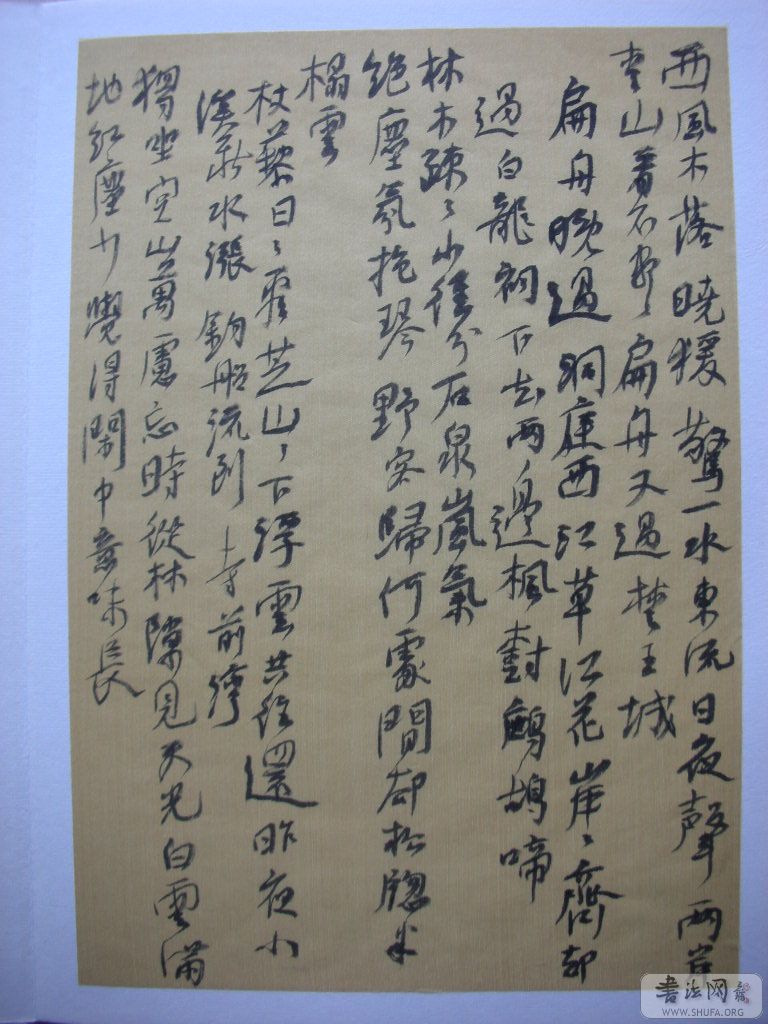 西風木落曉猨驚一水東流日夜聲兩岸
青山看不盡扁舟又過楚王城
扁舟晚過洞庭西江草江花岸々齊却
過白龍祠下去兩邊楓樹鷓鴣啼
林木疎々小徑分石泉嵐氣
絕塵氛抱琴野客歸何處閒却松牕半
榻雲
杖藜日々看芝山々下浮雲共往還昨夜小
溪新水漲釣船流到寺前灣
獨坐空山萬慮忘時從林隙見天光白雲滿
地紅塵少覺得閒中意味長
书法网
WWW.SHUFA.ORG